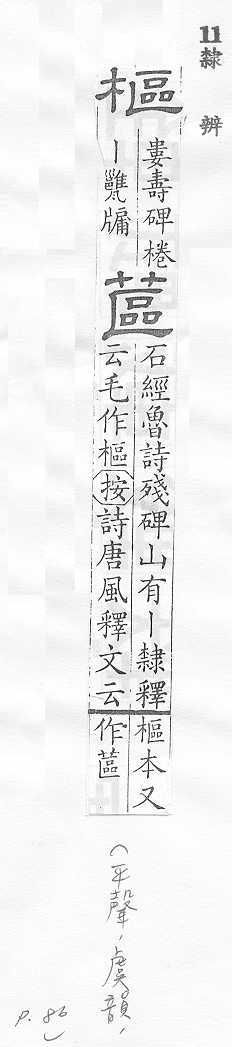 11隸 辨
樞
婁壽碑棬
丨甕牖
蓲
石經魯詩殘碑山有丨隸釋
云毛作樞按詩唐風釋文云
樞本又
作蓲
(平聲,虞韻,
P.86